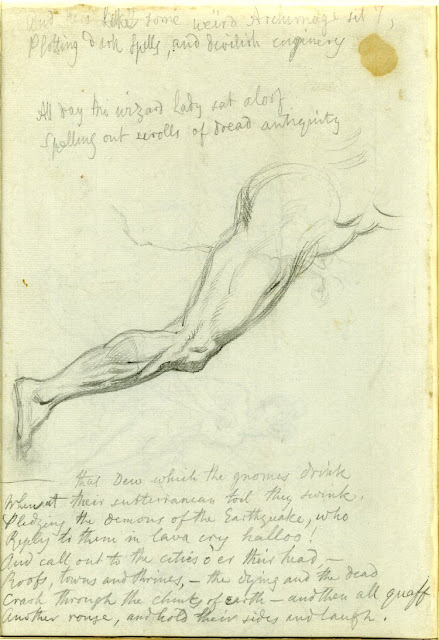 And here like some weird Archimage sit I,
Plotting dark spells, and devilish enginery
All day the wizard lady sat aloof
Spelling out scrolls of dread antiquity
that Dew which the gnomes drink
When at their subterranean toil they swink,
Pledging the demons of the Earthquake, who
Reply to them in lava cry halloo!
And call out to the cities o er their head –
Roofs, towns and shrines, – the dying and the dead
Crash through the chinks of earth – and then all quaff
Another rouse, and hold their sides and laugh.